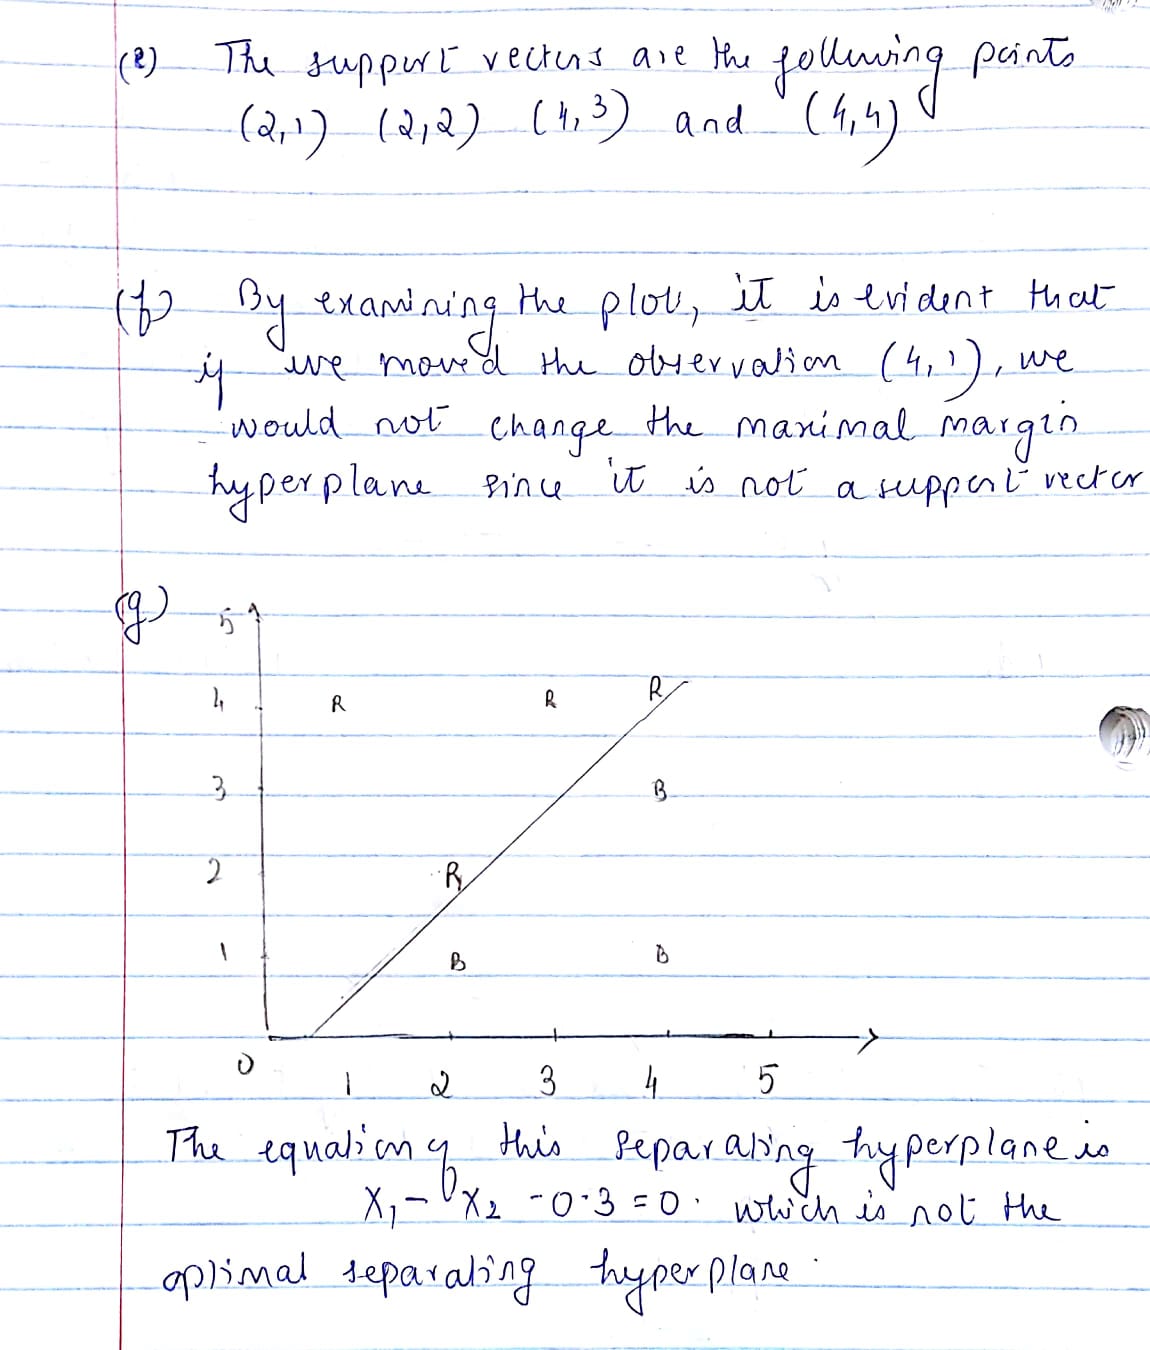 (e) The support vectors are the following points
(2,1) (2,2) (4,3) and (4,4)
(f) By examining the plot, it is evident that
if we moved the observation (4,1), we
would not change the maximal margin
hyperplane since it is not a support vector
(g) 5
4 R R R
3 B
2 R
1 B B
0 1 2 3 4 5
The equation of this separating hyperplane is
X₁ - X₂ - 0.3 = 0. which is not the
optimal separating hyperplane.